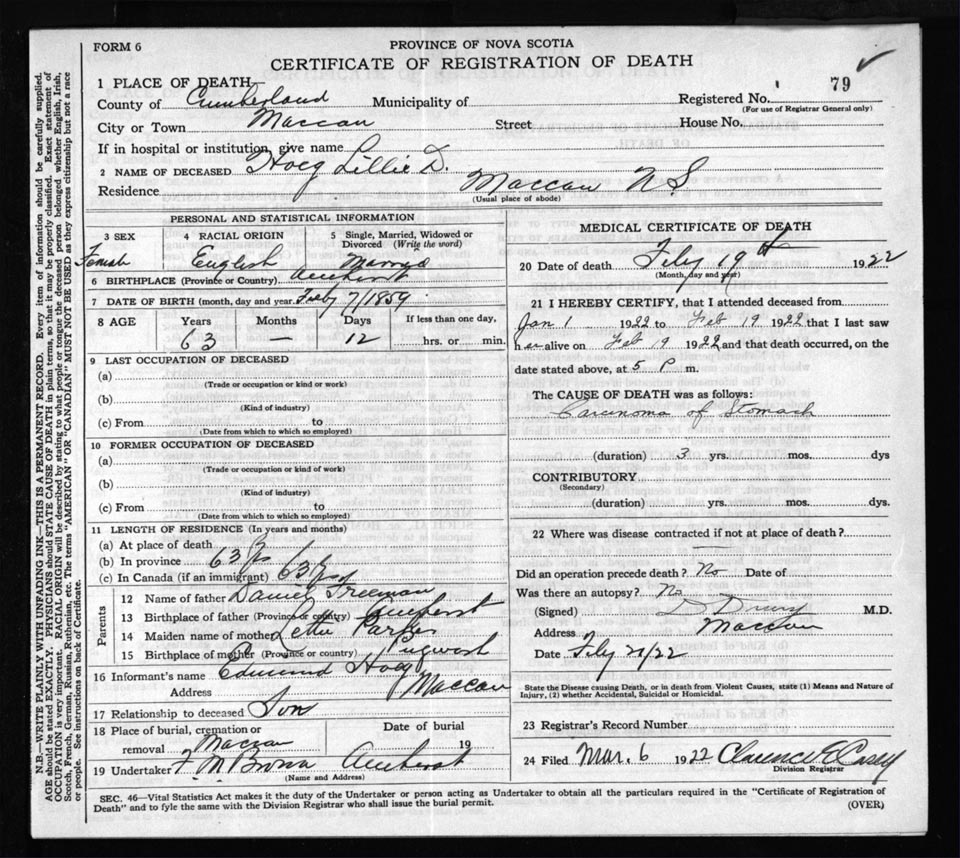 FORM 6
PROVINCE OF NOVA SCOTIA
CERTIFICATE OF REGISTRATION OF DEATH
1 PLACE OF DEATH—
County of Cumberland Municipality of Registered No. 79
(For use of Registrar General only)
City or Town Maccan Street House No.
If in hospital or institution, give name
2 NAME OF DECEASED Hoeg Lillie D.
Residence Maccan N S
(Usual place of abode)
PERSONAL AND STATISTICAL INFORMATION
3 SEX Female
4 RACIAL ORIGIN English
5 Single, Married, Widowed or Divorced (Write the word) Married
6 BIRTHPLACE (Province or Country) Amherst
7 DATE OF BIRTH (month, day and year) Feby 7/1859
8 AGE Years Months Days If less than one day,
63 — 12 hrs. or min.
9 LAST OCCUPATION OF DECEASED
(a)
(Trade or occupation or kind or work)
(b)
(Kind of industry)
(c) From to
(Date from which to which so employed)
10 FORMER OCCUPATION OF DECEASED
(a)
(Trade or occupation or kind or work)
(b)
(Kind of industry)
(c) From to
(Date from which to which so employed)
11 LENGTH OF RESIDENCE (In years and months)
(a) At place of death
(b) In province 63 yrs
(c) In Canada (if an immigrant) 63 yrs
Parents
12 Name of father Daniel Freeman
13 Birthplace of father (Province or country) Amherst
14 Maiden name of mother Parker
15 Birthplace of mother (Province or country) Pugwash
16 Informant's name Edmund Hoeg
Address Maccan
17 Relationship to deceased Son
18 Place of burial, cremation or removal Maccan
Date of burial 19
19 Undertaker F. M Brown Amherst
(Name and Address)
MEDICAL CERTIFICATE OF DEATH
20 Date of death Feby 19th 1922
(Month, day and year)
21 I HEREBY CERTIFY, that I attended deceased from
Jan 1 1922 to Feb 19 1922 that I last saw
her alive on Feb 19 1922 and that death occurred, on the
date stated above, at 5 P m.
The CAUSE OF DEATH was as follows:
Carcinoma of Stomach
(duration) 3 yrs. mos. dys
CONTRIBUTORY
(Secondary)
(duration) yrs. mos. dys.
22 Where was disease contracted if not at place of death?
—
Did an operation precede death? No Date of
Was there an autopsy? No
(Signed) D Drury M.D.
Address Maccan
Date Feby 21/22
State the Disease causing Death, or in death from Violent Causes, state (1) Means and Nature of
Injury, (2) whether Accidental, Suicidal or Homicidal.
23 Registrar's Record Number
24 Filed Mar. 6 1922 Clarence E Casey
Division Registrar
SEC. 46—Vital Statistics Act makes it the duty of the Undertaker or person acting as Undertaker to obtain all the particulars required in the "Certificate of Registration of
Death" and to fyle the same with the Division Registrar who shall issue the burial permit.
(OVER)
N.B.—WRITE PLAINLY WITH UNFADING INK—THIS IS A PERMANENT RECORD. Every item of information should be carefully supplied.
AGE should be stated EXACTLY. PHYSICIANS should STATE CAUSE OF DEATH in plain terms, so that it may be properly classified. Exact statement of
OCCUPATION is very important. RACIAL ORIGIN will be described by stating to what people or tongue the deceased person belonged whether English, Irish,
Scotch, French, German, Russian, Ruthenian, etc. The terms "AMERICAN" OR "CANADIAN" MUST NOT BE USED as they express citizenship but not a race
or people. See instructions on back of Certificate.